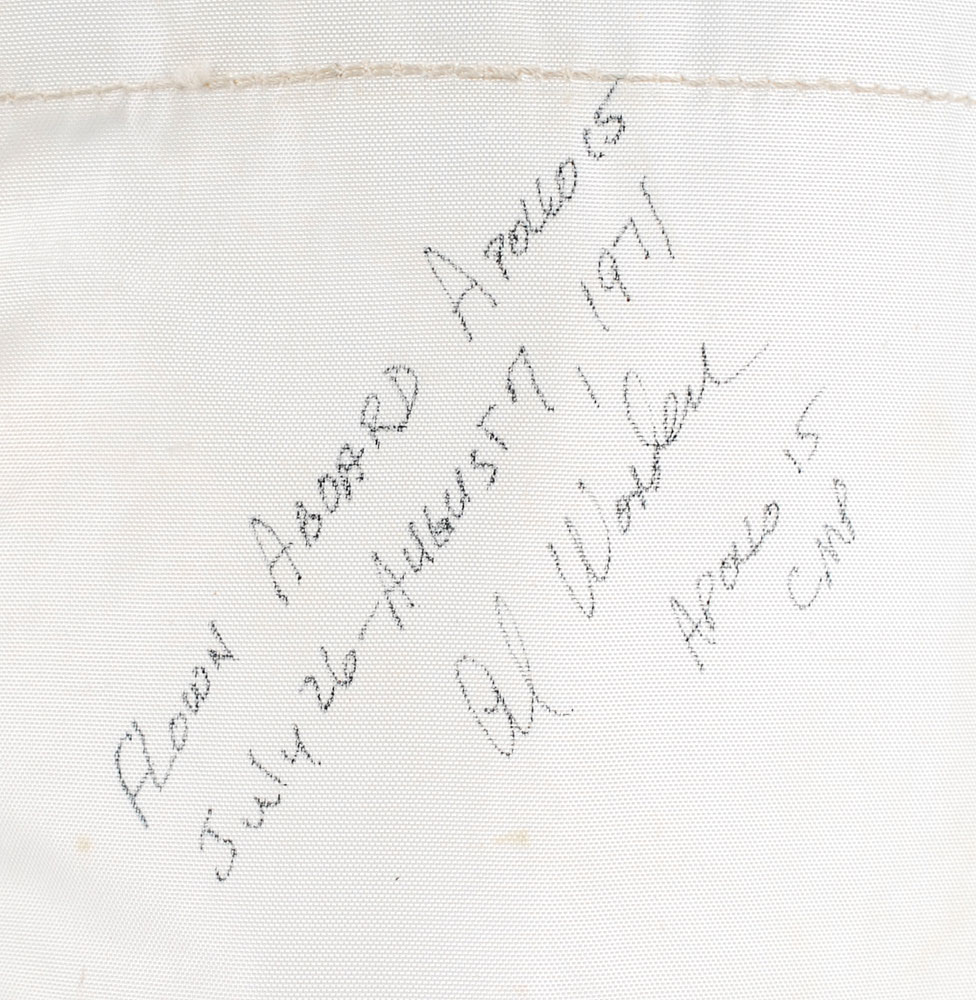 Flown Aboard Apollo 15
July 26 - August 7, 1971
Al Worden
Apollo 15
CMP